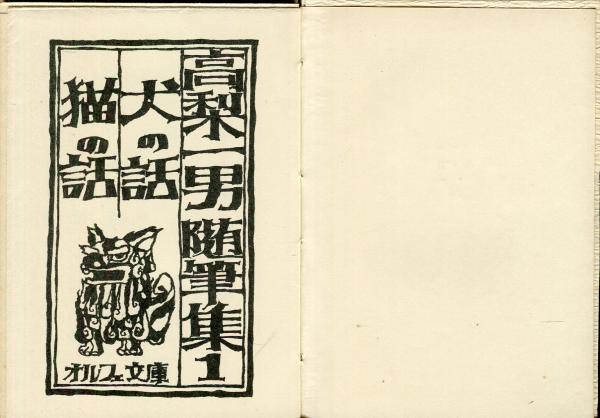 高梨一男随筆集1
犬の話
猫の話
オルフェ文庫